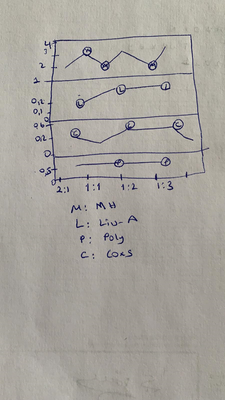 4
3
M
2
M
M
1
L
L
L
0,2
0,1
0
0,6
C
L
C
0,2
0
P
P
0,5
2:1 1:1 1:2 1:3
M: MH
L: Liu-A
P: Poly
C: Coxs